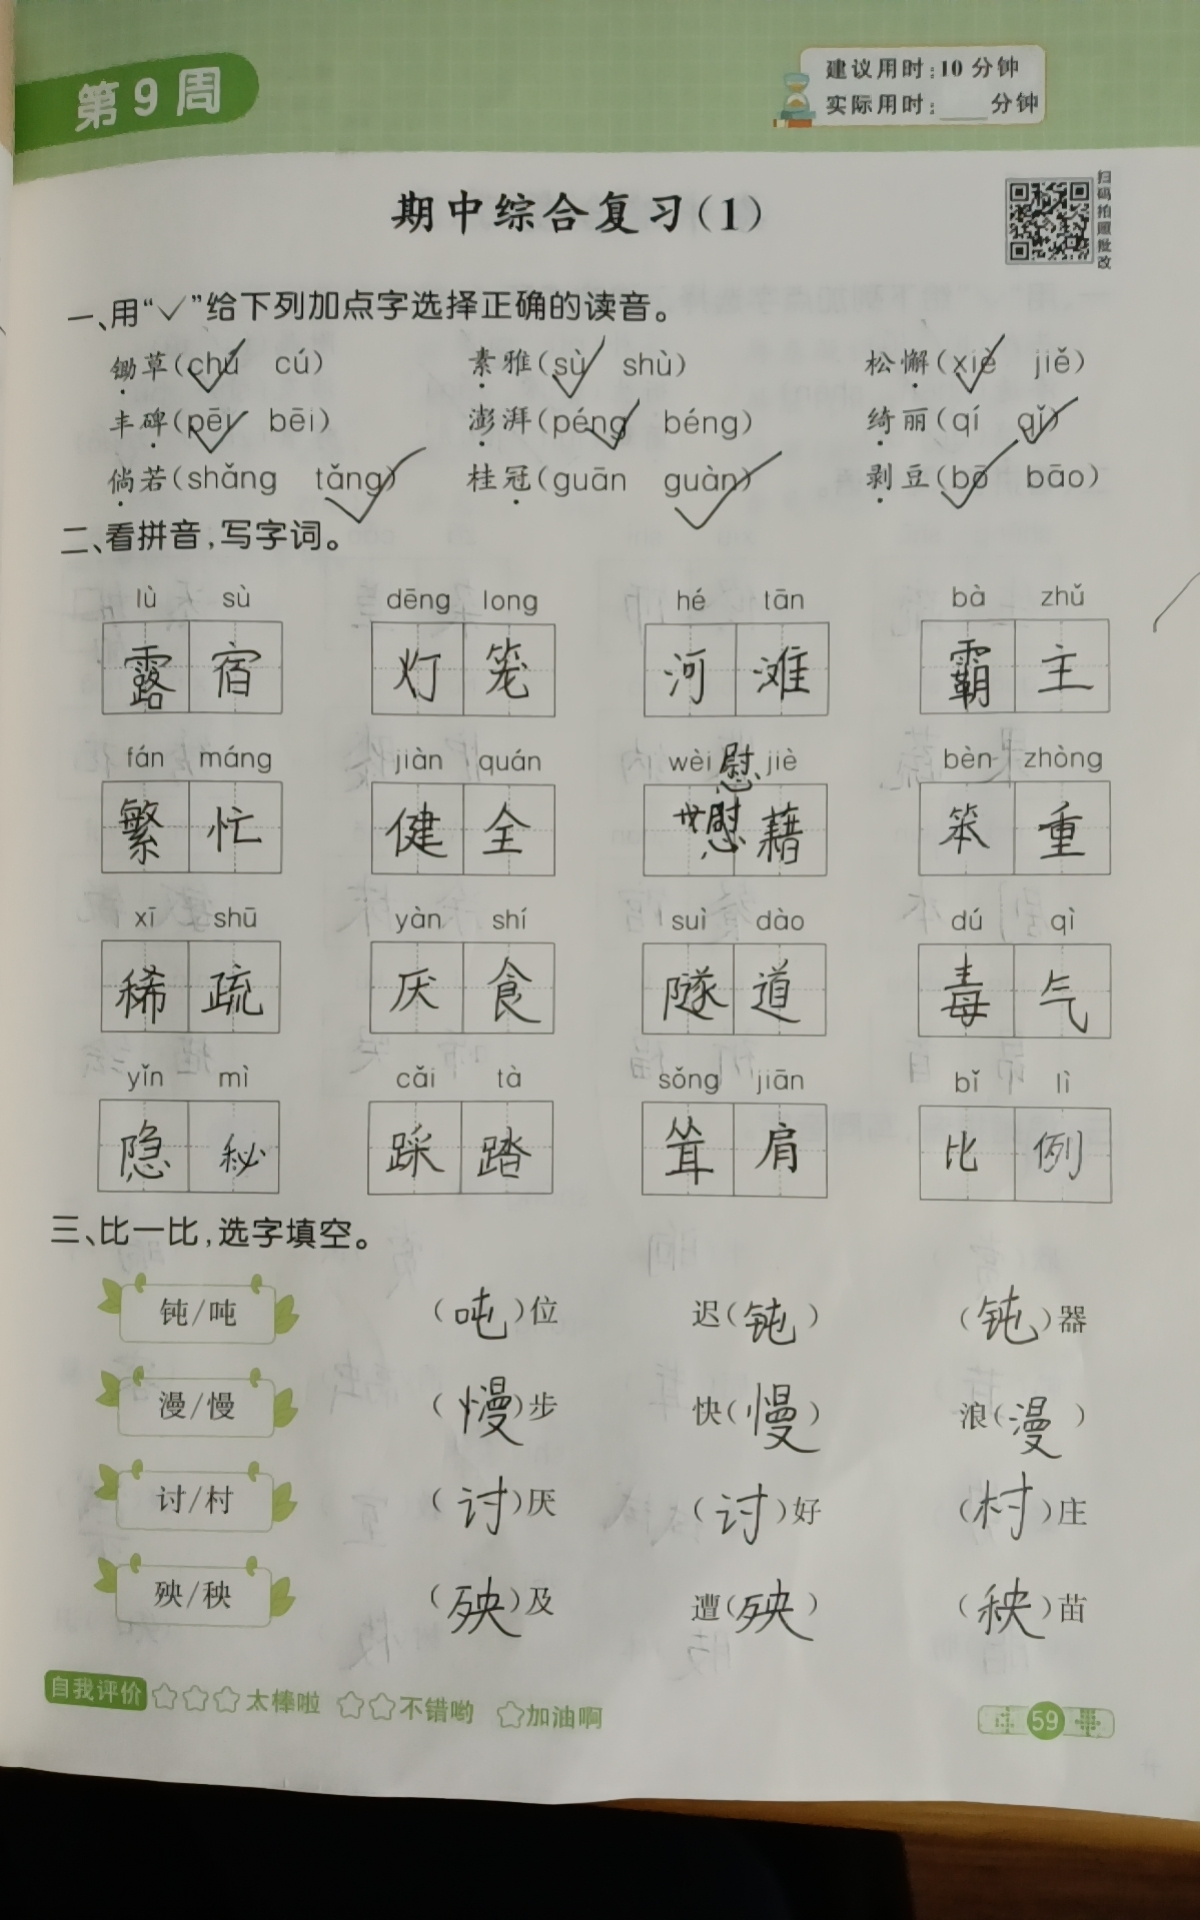 第9周
建议用时:10分钟
实际用时:____分钟
期中综合复习(1)
扫码拍照批改
一、用“✓”给下列加点字选择正确的读音。
锄草(chú✓ cú) 素雅(sù✓ shù) 松懈(xiè✓ jiě)
丰碑(pēi✓ bēi) 澎湃(péng✓ béng) 绮丽(qí qǐ✓)
倘若(shǎng tǎng✓) 桂冠(guān guàn✓) 剥豆(bō✓ bāo)
二、看拼音,写字词。
lù sù dēng long hé tān bà zhǔ
露宿 灯笼 河滩 霸主
fán máng jiàn quán wèi jiè bèn zhòng
慰
繁忙 健全 慰藉 笨重
xī shū yàn shí suì dào dú qì
稀疏 厌食 隧道 毒气
yǐn mì cǎi tà sǒng jiān bǐ lì
隐秘 踩踏 耸肩 比例
三、比一比,选字填空。
钝/吨 (吨)位 迟(钝) (钝)器
漫/慢 (慢)步 快(慢) 浪(漫)
讨/村 (讨)厌 (讨)好 (村)庄
殃/秧 (殃)及 遭(殃) (秧)苗
自我评价 ☆☆☆太棒啦 ☆☆不错哟 ☆加油啊
59